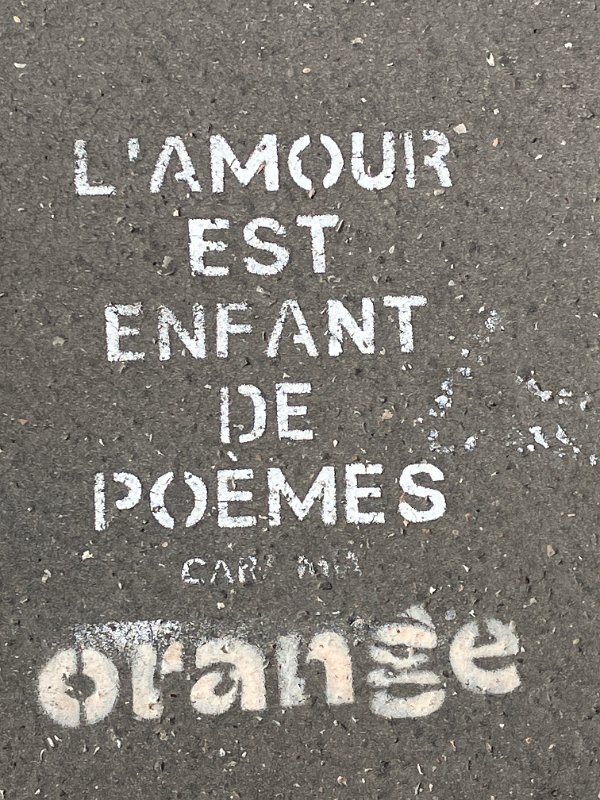 L'AMOUR
EST
ENFANT
DE
POÈMES
orange